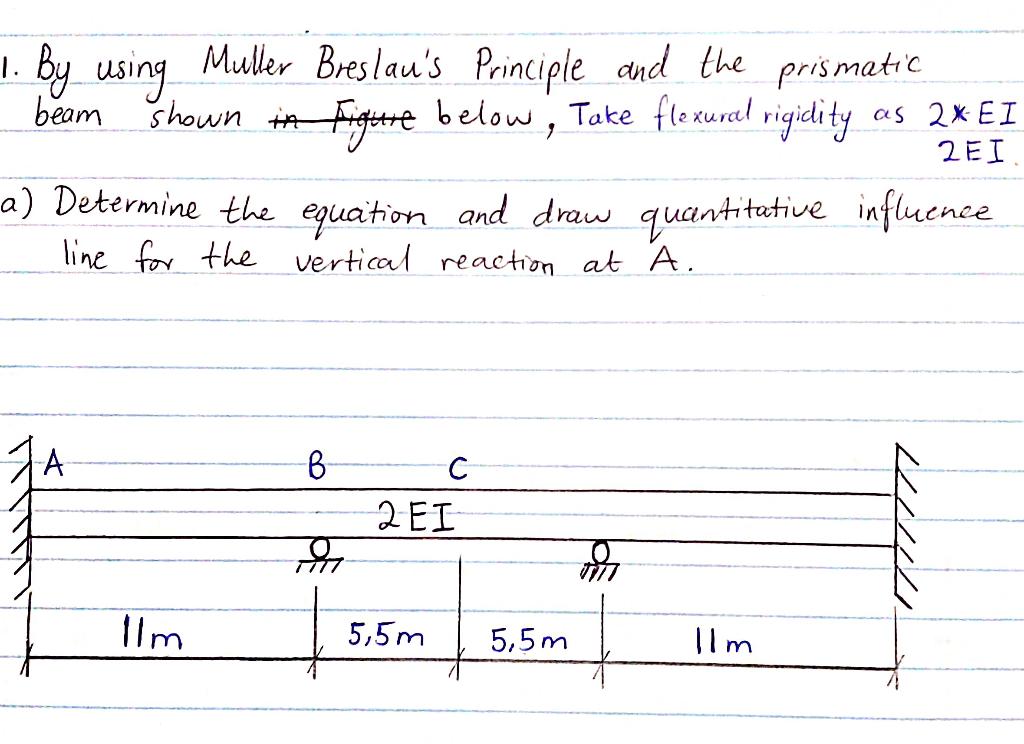 1. By using Muller Breslau's Principle and the prismatic
beam shown in Figure below, Take flexural rigidity as 2*EI
2EI.
a) Determine the equation and draw quantitative influence
line for the vertical reaction at A.
A B C
2EI
11m 5,5m 5,5m 11m